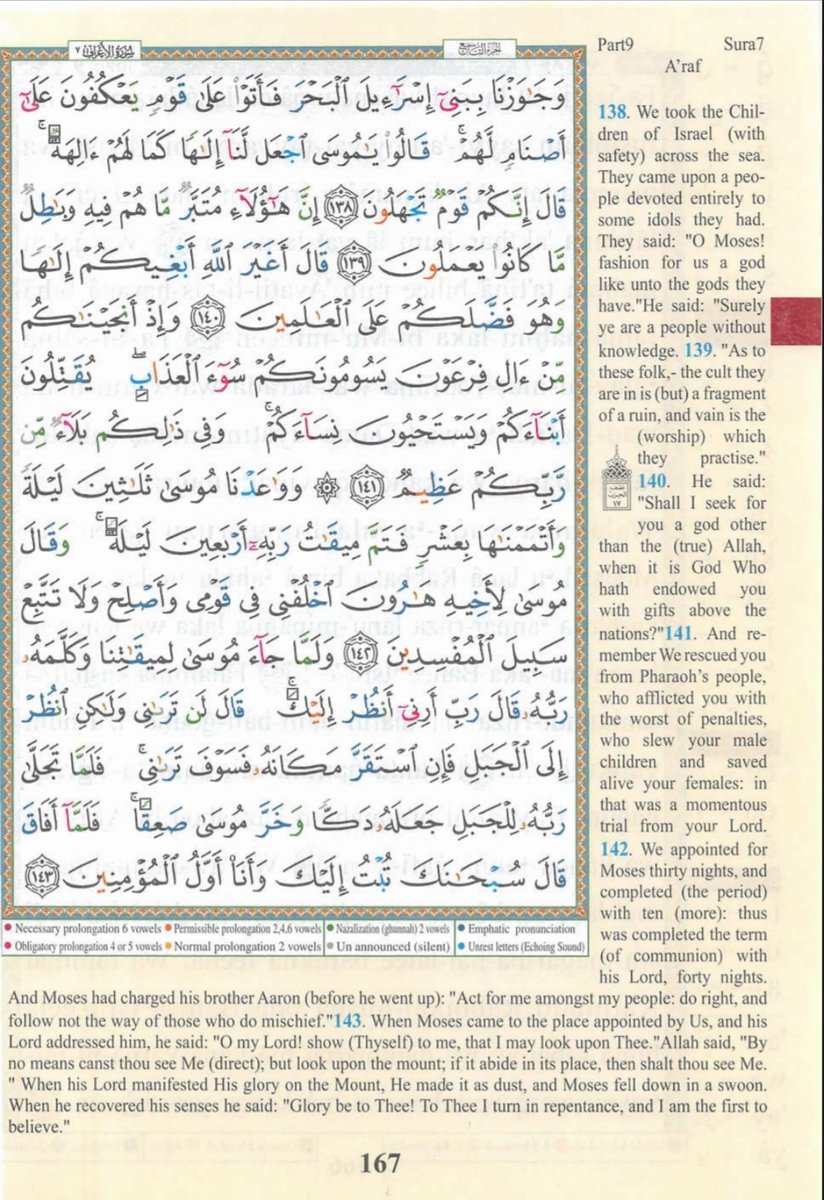 سُورَةُ الأَعْرَافِ ٧
الجزء التاسع
Part9 Sura7
A'raf
وَجَٰوَزْنَا بِبَنِىٓ إِسْرَٰٓءِيلَ ٱلْبَحْرَ فَأَتَوْا۟ عَلَىٰ قَوْمٍ يَعْكُفُونَ عَلَىٰٓ
أَصْنَامٍ لَّهُمْ ۚ قَالُوا۟ يَٰمُوسَى ٱجْعَل لَّنَآ إِلَٰهًا كَمَا لَهُمْ ءَالِهَةٌ ۚ
قَالَ إِنَّكُمْ قَوْمٌ تَجْهَلُونَ ١٣٨ إِنَّ هَٰٓؤُلَآءِ مُتَبَّرٌ مَّا هُمْ فِيهِ وَبَٰطِلٌ
مَّا كَانُوا۟ يَعْمَلُونَ ١٣٩ قَالَ أَغَيْرَ ٱللَّهِ أَبْغِيكُمْ إِلَٰهًا
وَهُوَ فَضَّلَكُمْ عَلَى ٱلْعَٰلَمِينَ ١٤٠ وَإِذْ أَنجَيْنَٰكُم
مِّنْ ءَالِ فِرْعَوْنَ يَسُومُونَكُمْ سُوٓءَ ٱلْعَذَابِ ۖ يُقَتِّلُونَ
أَبْنَآءَكُمْ وَيَسْتَحْيُونَ نِسَآءَكُمْ ۚ وَفِى ذَٰلِكُم بَلَآءٌ مِّن
رَّبِّكُمْ عَظِيمٌ ١٤١ ۞ وَوَٰعَدْنَا مُوسَىٰ ثَلَٰثِينَ لَيْلَةً
وَأَتْمَمْنَٰهَا بِعَشْرٍ فَتَمَّ مِيقَٰتُ رَبِّهِۦٓ أَرْبَعِينَ لَيْلَةً ۚ وَقَالَ
مُوسَىٰ لِأَخِيهِ هَٰرُونَ ٱخْلُفْنِى فِى قَوْمِى وَأَصْلِحْ وَلَا تَتَّبِعْ
سَبِيلَ ٱلْمُفْسِدِينَ ١٤٢ وَلَمَّا جَآءَ مُوسَىٰ لِمِيقَٰتِنَا وَكَلَّمَهُۥ
رَبُّهُۥ قَالَ رَبِّ أَرِنِىٓ أَنظُرْ إِلَيْكَ ۚ قَالَ لَن تَرَىٰنِى وَلَٰكِنِ ٱنظُرْ
إِلَى ٱلْجَبَلِ فَإِنِ ٱسْتَقَرَّ مَكَانَهُۥ فَسَوْفَ تَرَىٰنِى ۚ فَلَمَّا تَجَلَّىٰ
رَبُّهُۥ لِلْجَبَلِ جَعَلَهُۥ دَكًّا وَخَرَّ مُوسَىٰ صَعِقًا ۚ فَلَمَّآ أَفَاقَ
قَالَ سُبْحَٰنَكَ تُبْتُ إِلَيْكَ وَأَنَا۠ أَوَّلُ ٱلْمُؤْمِنِينَ ١٤٣
Necessary prolongation 6 vowels Permissible prolongation 2,4,6 vowels Nazalization (ghunnah) 2 vowels Emphatic pronunciation
Obligatory prolongation 4 or 5 vowels Normal prolongation 2 vowels Un announced (silent) Unrest letters (Echoing Sound)
138. We took the Chil-
dren of Israel (with
safety) across the sea.
They came upon a peo-
ple devoted entirely to
some idols they had.
They said: "O Moses!
fashion for us a god
like unto the gods they
have."He said: "Surely
ye are a people without
knowledge. 139. "As to
these folk,- the cult they
are in is (but) a fragment
of a ruin, and vain is the
(worship) which
they practise."
140. He said:
"Shall I seek for
you a god other
than the (true) Allah,
when it is God Who
hath endowed you
with gifts above the
nations?"141. And re-
member We rescued you
from Pharaoh's people,
who afflicted you with
the worst of penalties,
who slew your male
children and saved
alive your females: in
that was a momentous
trial from your Lord.
142. We appointed for
Moses thirty nights, and
completed (the period)
with ten (more): thus
was completed the term
(of communion) with
his Lord, forty nights.
And Moses had charged his brother Aaron (before he went up): "Act for me amongst my people: do right, and
follow not the way of those who do mischief."143. When Moses came to the place appointed by Us, and his
Lord addressed him, he said: "O my Lord! show (Thyself) to me, that I may look upon Thee."Allah said, "By
no means canst thou see Me (direct); but look upon the mount; if it abide in its place, then shalt thou see Me.
" When his Lord manifested His glory on the Mount, He made it as dust, and Moses fell down in a swoon.
When he recovered his senses he said: "Glory be to Thee! To Thee I turn in repentance, and I am the first to
believe."
167